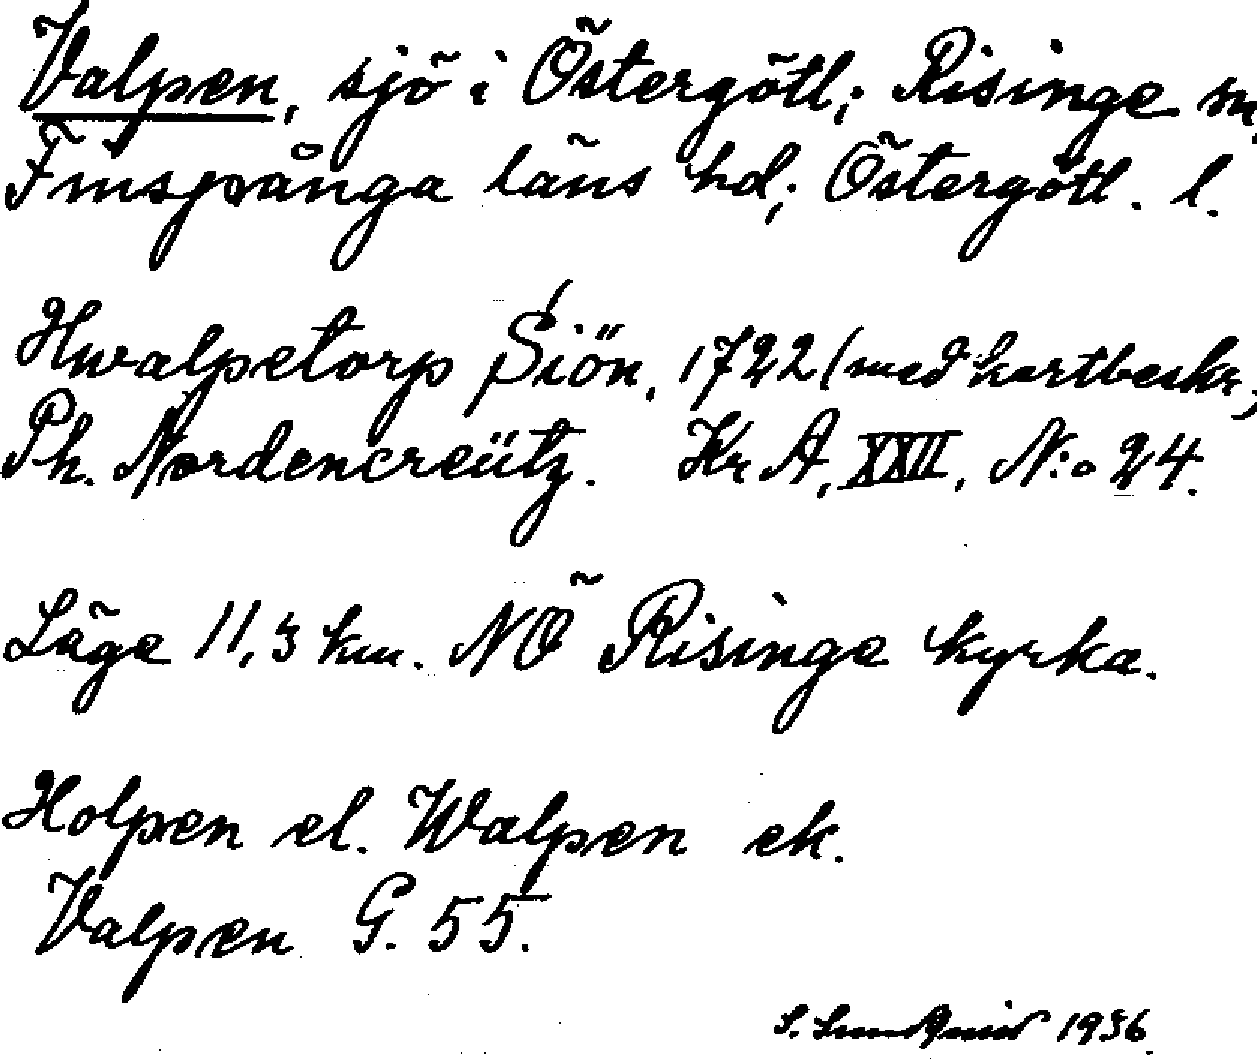 Valpen, sjö i Östergötl; Risinge sn,
Finspånga läns hd; Östergötl. l.
Hwalpetorp Siön, 1722 (med kartbeskr,
Ph. Nordencreütz. Kr A, XXII, N:o 24.
Läge 11,5 km. NÖ Risinge kyrka.
Holpen el. Walpen ek.
Valpen G. 55.
S. 1936